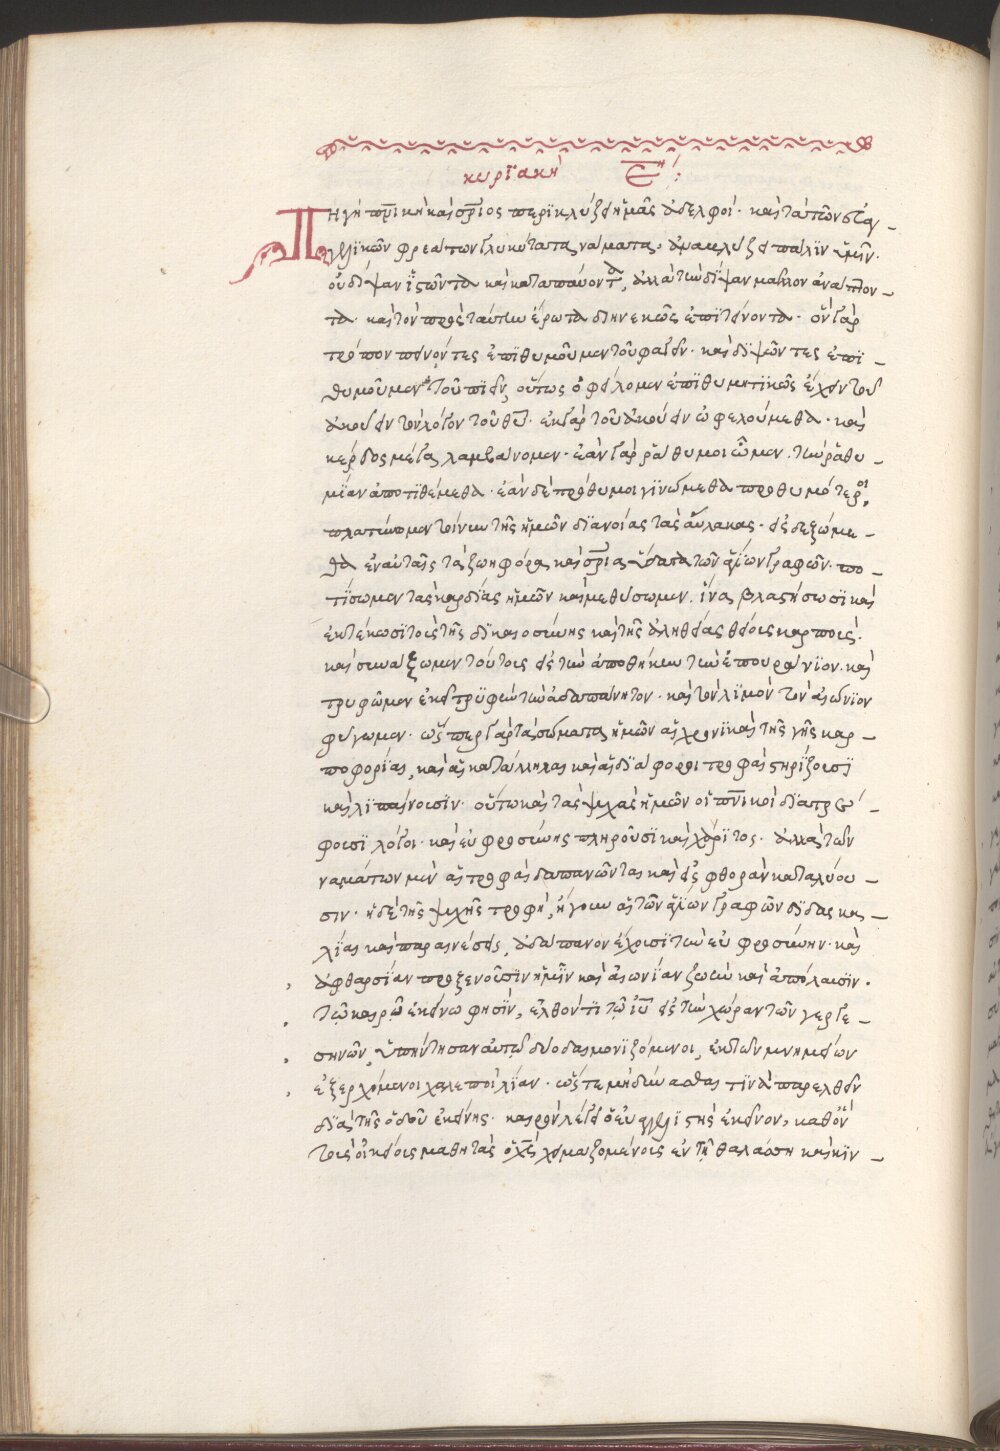 κυριακὴ Ε´:
Πηγὴ πνικὴ καὶ σριος περικλύζει ἡμᾶς ἀδελφοί· καὶ τὰ τῶν εὐαγ-
γλικῶν φρεάτων γλυκύτατα νάματα, ἀναβλύζει πάλιν ἡμῖν·
οὐ δίψαν ἱστῶντα καὶ καταπαύοντα, ἀλλὰ τὴν δίψαν μᾶλλον ἀνάπτον-
τα· καὶ τὸν πρὸς ταύτην ἔρωτα διηνεκῶς ἐπιτείνοντα· ὃν γὰρ
τρόπον πεινῶντες ἐπιθυμοῦμεν τοῦ φαγεῖν· καὶ διψῶντες ἐπι-
θυμοῦμεν τοῦ πιεῖν, οὕτως ὀφείλομεν ἐπιθυμητικῶς ἔχειν τοῦ
ἀκούειν τὸν λόγον τοῦ θυ· ἐκ γὰρ τοῦ ἀκούειν ὠφελούμεθα· καὶ
κέρδος μέγα λαμβάνομεν· ἐὰν γὰρ ῥάθυμοι ὦμεν, τὴν ῥαθυ-
μίαν ἀποτιθέμεθα· ἐὰν δὲ πρόθυμοι γινώμεθα προθυμότεροι.
πλατύνομεν τοίνυν τῆς ἡμῶν διανοίας τὰς αὔλακας· εἰσδεξώμε-
θα ἐν αὐταῖς τὰ ζωηφόρα καὶ σρια ὕδατα τῶν ἁγίων γραφῶν· πο-
τίσωμεν τὰς καρδίας ἡμῶν καὶ μεθύσωμεν, ἵνα βλαστήσωσι καὶ
ἐκτέκωσι τοὺς τῆς δικαιοσύνης καὶ τῆς ἀληθείας θείους καρπούς·
καὶ συνάξωμεν τούτους εἰς τὴν ἀποθήκην τὴν ἐπουράνιον· καὶ
τρυφῶμεν ἐκεῖ τρυφὴν τὴν ἀδαπάνητον· καὶ τὸν λιμὸν τὸν αἰώνιον
φύγωμεν· ὥσπερ γὰρ τὰ σώματα ἡμῶν αἱ χρονικαὶ τῆς γῆς καρ-
ποφορίαι, καὶ αἱ κατάλληλαι καὶ αἱ διάφοροι τροφαὶ στηρίζουσι
καὶ λιπαίνουσιν· οὕτω καὶ τὰς ψυχὰς ἡμῶν οἱ πνικοὶ διατρέ-
φουσι λόγοι· καὶ εὐφροσύνης πληροῦσι καὶ χάριτος· ἀλλὰ τῶν
ναμάτων μὲν αἱ τροφαὶ δαπανῶνται καὶ εἰς φθορὰν καταλύου-
σιν· ἡ δὲ τῆς ψυχῆς τροφὴ, ἤγουν αἱ τῶν ἁγίων γραφῶν διδασκα-
λίαι καὶ παραινέσεις, ἀδάπανον ἔχουσι τὴν εὐφροσύνην· καὶ
ἀφθαρσίαν προξενοῦσιν ἡμῖν καὶ αἰωνίαν ζωὴν καὶ ἀπόλαυσιν·
Τῷ καιρῷ ἐκείνω φησὶν, ἐλθόντι τῷ ιυ εἰς τὴν χώραν τῶν γεργε-
σηνῶν, ὑπήντησαν αὐτῷ δύο δαιμονιζόμενοι, ἐκ τῶν μνημείων
ἐξερχόμενοι χαλεποὶ λίαν· ὥστε μὴ δύνασθαι τινὰ παρελθεῖν
διὰ τῆς ὁδοῦ ἐκείνης· καιρὸν λέγει ὁ εὐαγγλιστὴς ἐκεῖνον, καθ' ὃν
τοὺς οἰκείους μαθητὰς ὁ χς χειμαζομένους ἐν τῇ θαλάσση καὶ κιν-